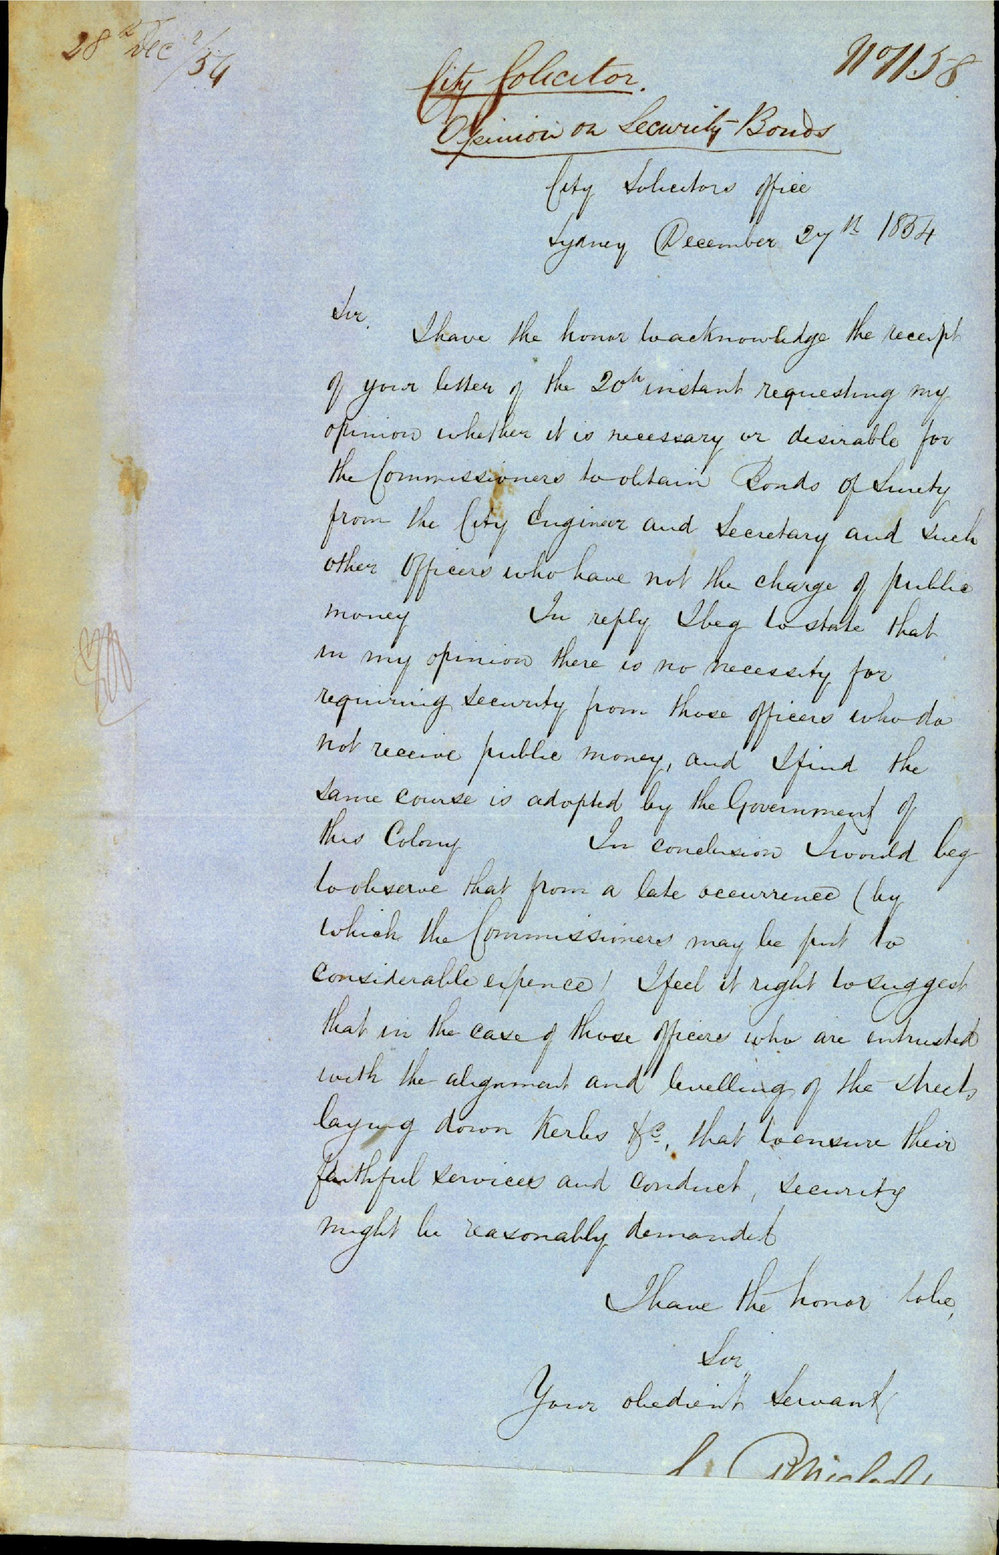 28th Dec r/54
No 1158
City Solicitor.
Opinion on Security Bonds
City Solicitors Office
Sydney December 27th 1854
Sir,
I have the honor to acknowledge the receipt
of your letter of the 20th instant requesting my
opinion whether it is necessary or desirable for
the Commissioners to obtain Bonds of Surety
from the City Engineer and Secretary and such
other Officers who have not the charge of public
money In reply I beg to state that
in my opinion there is no necessity for
requiring security from those officers who do
not receive public money, and I find the
same course is adopted by the Government of
this Colony In conclusion I would beg
to observe that from a late occurrence (by
which the Commissioners may be put to
considerable expence) I feel it right to suggest
that in the case of those officers who are entrusted
with the alignment and levelling of the streets
laying down Kerbs &c, that to ensure their
faithful services and conduct, security
might be reasonably demanded
I have the honor to be,
Sir,
Your obedient Servant